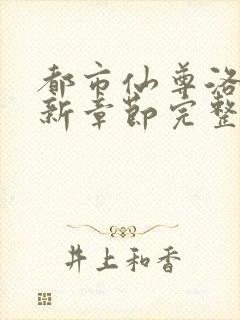 都市仙尊洛
新章节完整
井上和香